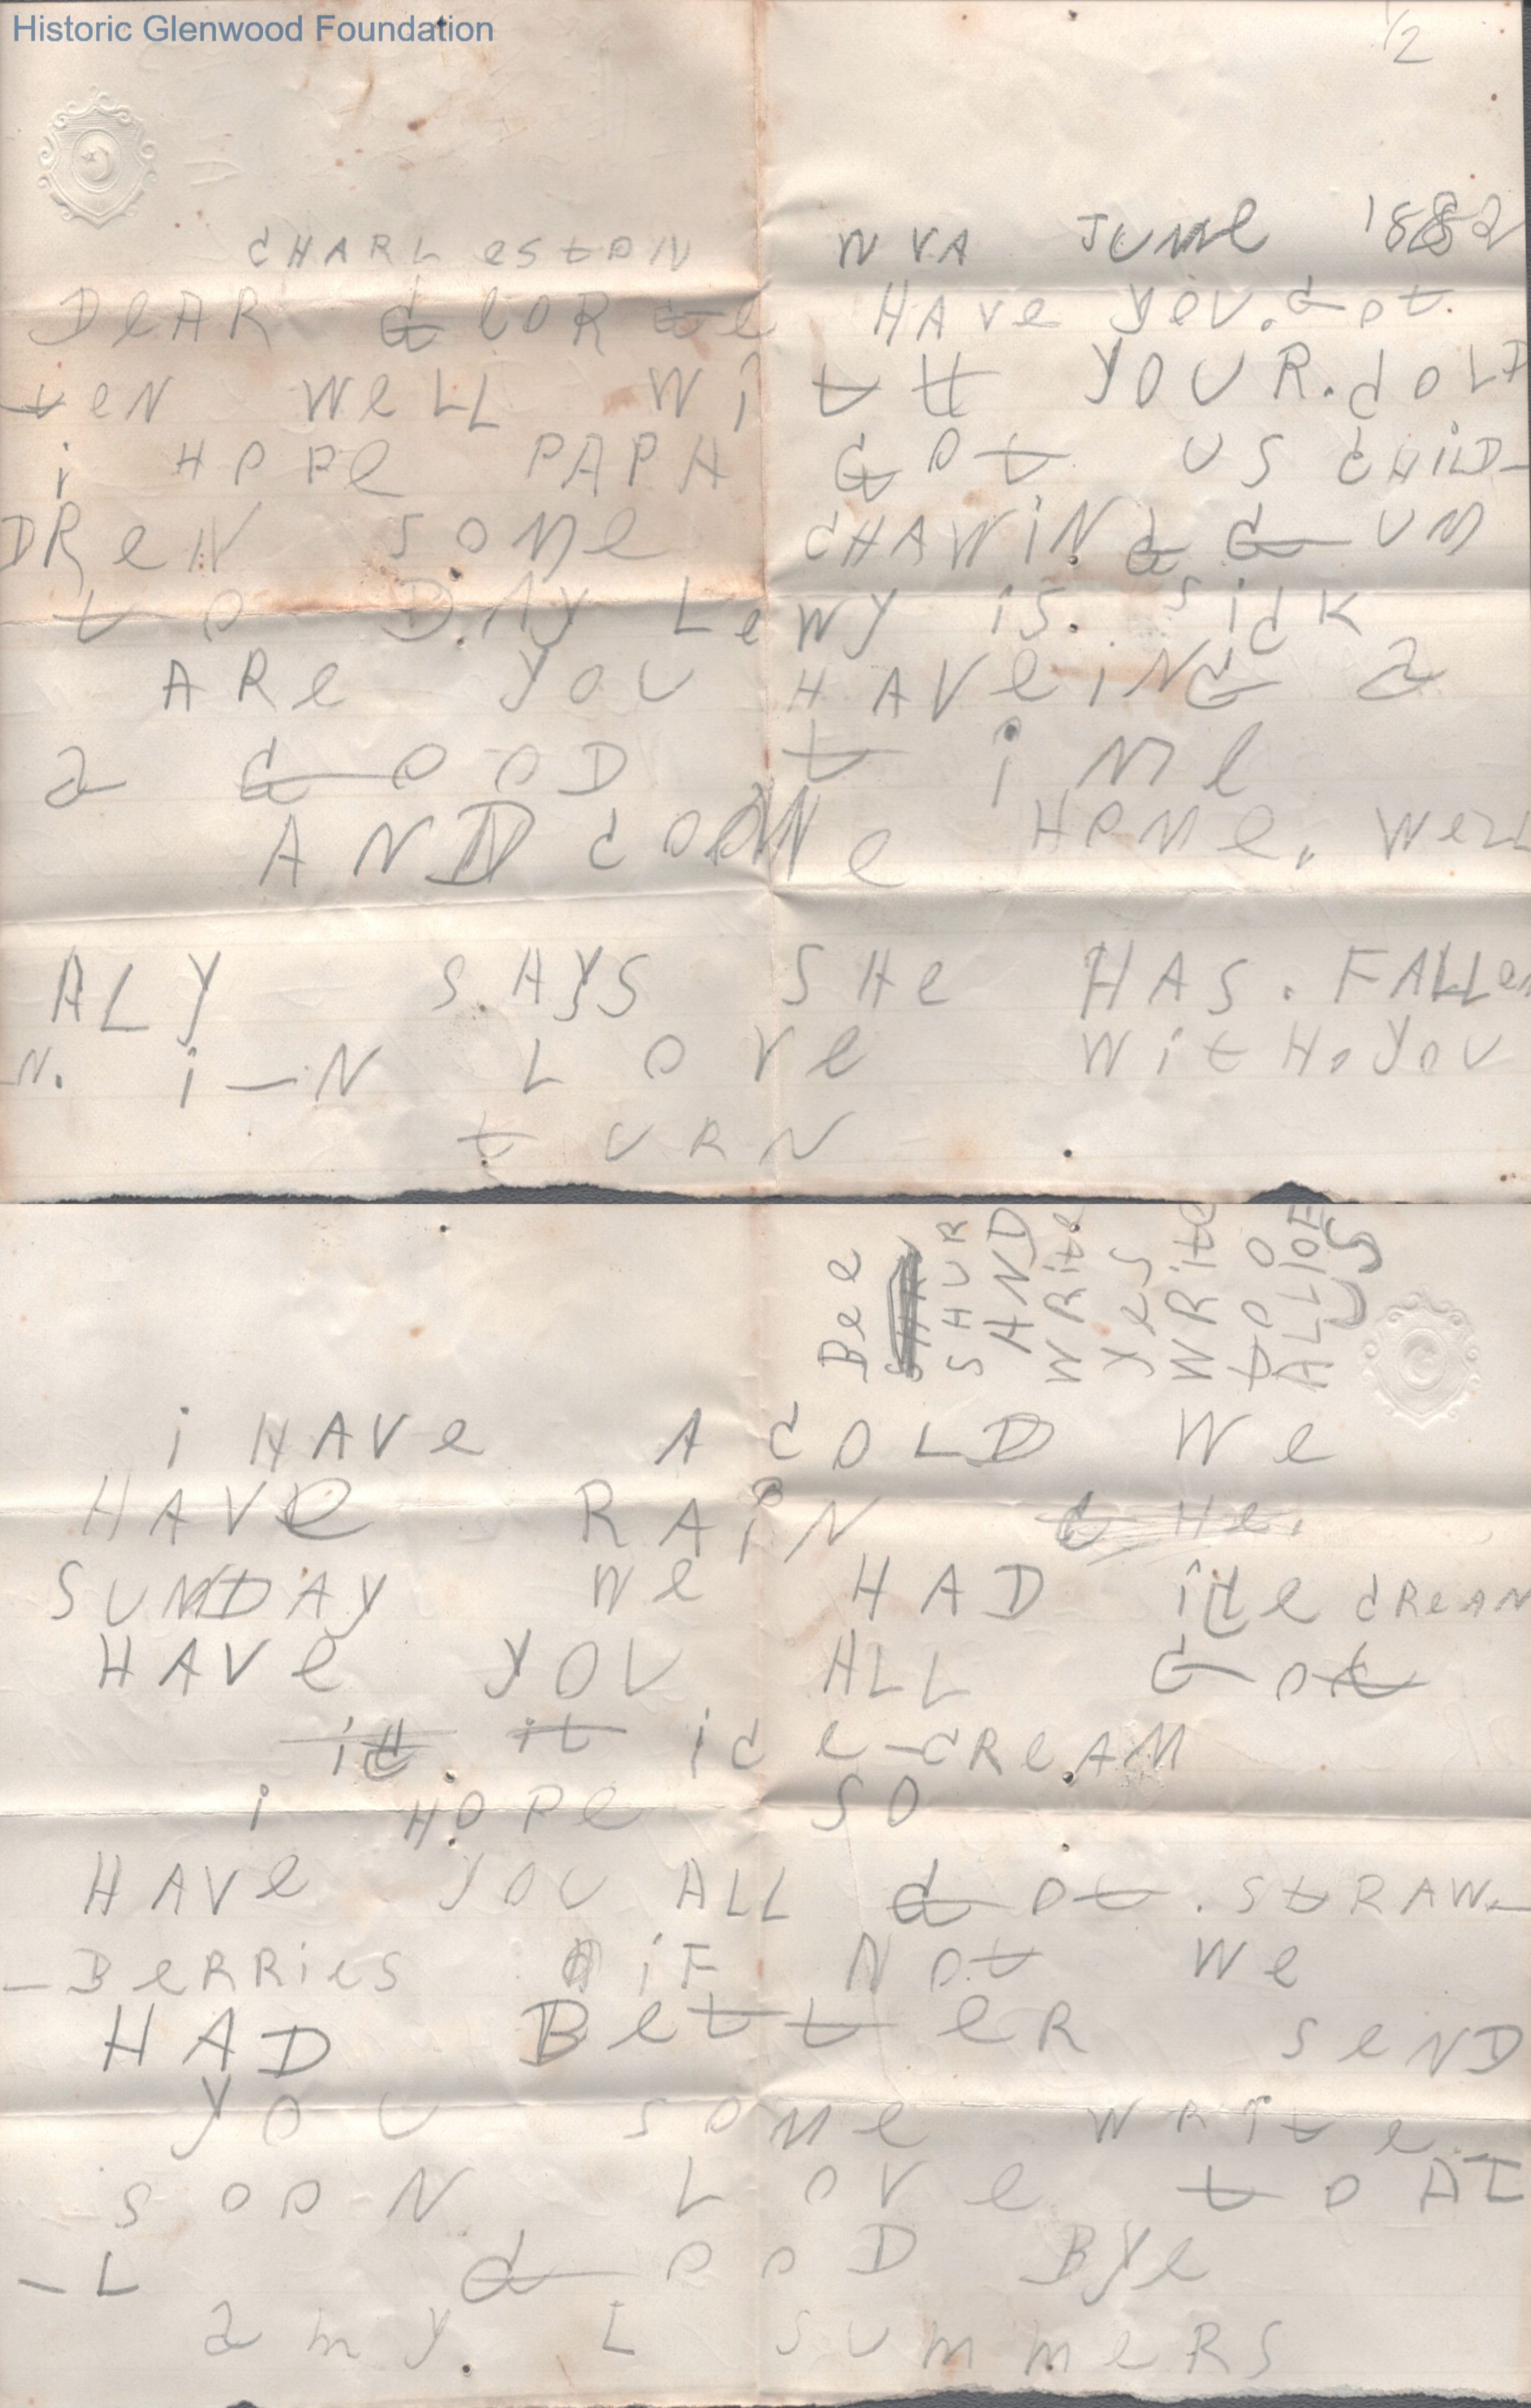 Historic Glenwood Foundation
1/2
CHARLestON W VA JUNe 1882
DeAR GeORGe HAVe yOU. GOt
teN WeLL Wi tH YOUR. COLD
i HOPe PAPA GOt US CHiLD-
DReN SOMe CHAWiNG GUM
tO DAY LeWy iS. SiCK
ARe YOU HAVeiNG a
a GOOD tiMe
AND COMe HOMe. WeLL
ALy SAYS SHe HAS. FALLe
N. i-N LOVe WitH. yOU
tURN
Bee
SHUR
AND
WRite
yes
WRite
DO
i HAVe A COLD We
HAVe RAiN tHe.
SUNDAY We HAD iCe CReAM
HAVe YOU ALL GOt
it. it iCe-CReAM
i HOPe SO
HAVe YOU ALL GOt. StRAW-
-BeRRies iF NOt We
HAD BetteR SeND
YOU SOMe WRite
SOON LOVe tO AL
-L GOOD Bye
amy. L SUmmeRS